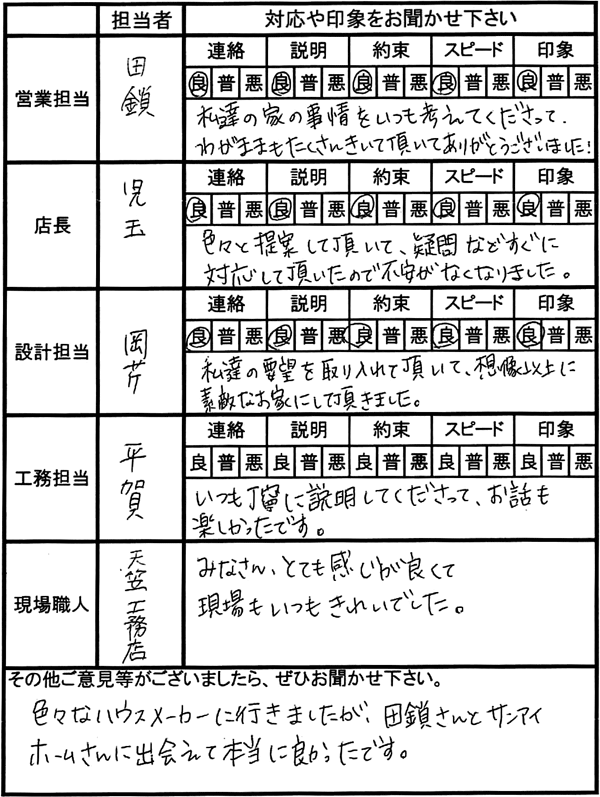 担当者 対応や印象をお聞かせ下さい
営業担当 田鎖
連絡 説明 約束 スピード 印象
良 普 悪 良 普 悪 良 普 悪 良 普 悪 良 普 悪
私達の家の事情をいつも考えてくださって、
わがままもたくさんきいて頂いてありがとうございました!
店長 児玉
連絡 説明 約束 スピード 印象
良 普 悪 良 普 悪 良 普 悪 良 普 悪 良 普 悪
色々と提案して頂いて、疑問などすぐに
対応して頂いたので不安がなくなりました。
設計担当 岡芹
連絡 説明 約束 スピード 印象
良 普 悪 良 普 悪 良 普 悪 良 普 悪 良 普 悪
私達の要望を取り入れて頂いて、想像以上に
素敵なお家にして頂きました。
工務担当 平賀
連絡 説明 約束 スピード 印象
良 普 悪 良 普 悪 良 普 悪 良 普 悪 良 普 悪
いつも丁寧に説明してくださって、お話も
楽しかったです。
現場職人 天笠工務店
みなさん、とても感じが良くて
現場もいつもきれいでした。
その他ご意見等がございましたら、ぜひお聞かせ下さい。
色々なハウスメーカーに行きましたが、田鎖さんとサンアイ
ホームさんに出会えて本当に良かったです。